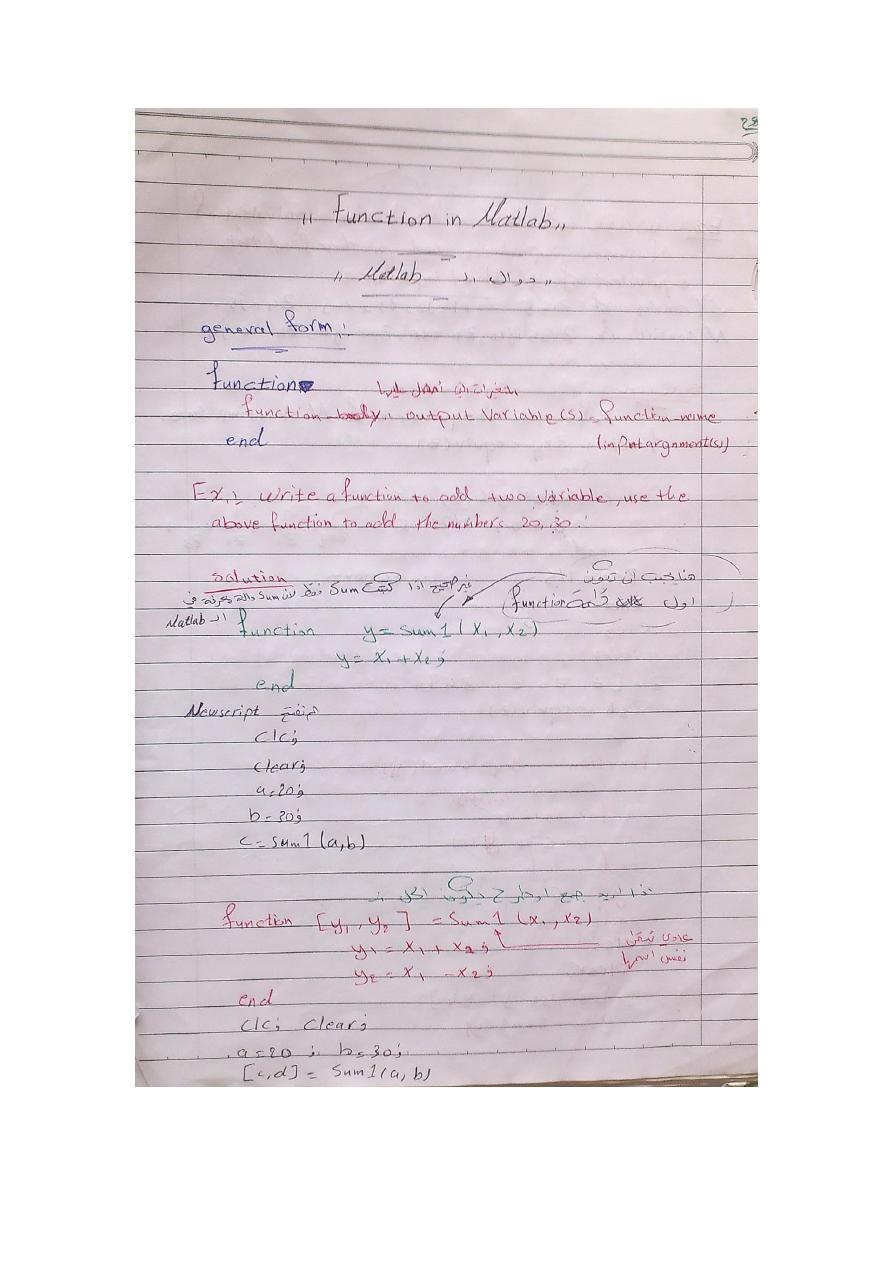 " Function in Matlab "
" دوال الـ Matlab "
general form:
function المتغيرات التي احصل عليها
function body: output variable(s) = function name
end (input argnment(s))
Ex: Write a function to add two variable, use the
above function to add the numbers 20, 30.
هنا يجب ان تكون
solution غير صحيح اذا كتبت Sum فقط لأن Sum دالة معرفة في
اول كلمة function
الـ Matlab
function y = sum1(x1, x2)
y = x1 + x2;
end
ثم نفتح Newscript
clc;
clear;
a=20;
b=30;
c= sum1(a,b)
اذا اريد جمع او طرح يكون الحل :-
function [y1, y2] = Sum1(x1, x2)
y1 = x1 + x2;
عادي تبقى
y2 = x1 - x2;
نفس اسمها
end
clc; clear;
a=20; b=30;
[c,d] = Sum1(a,b)